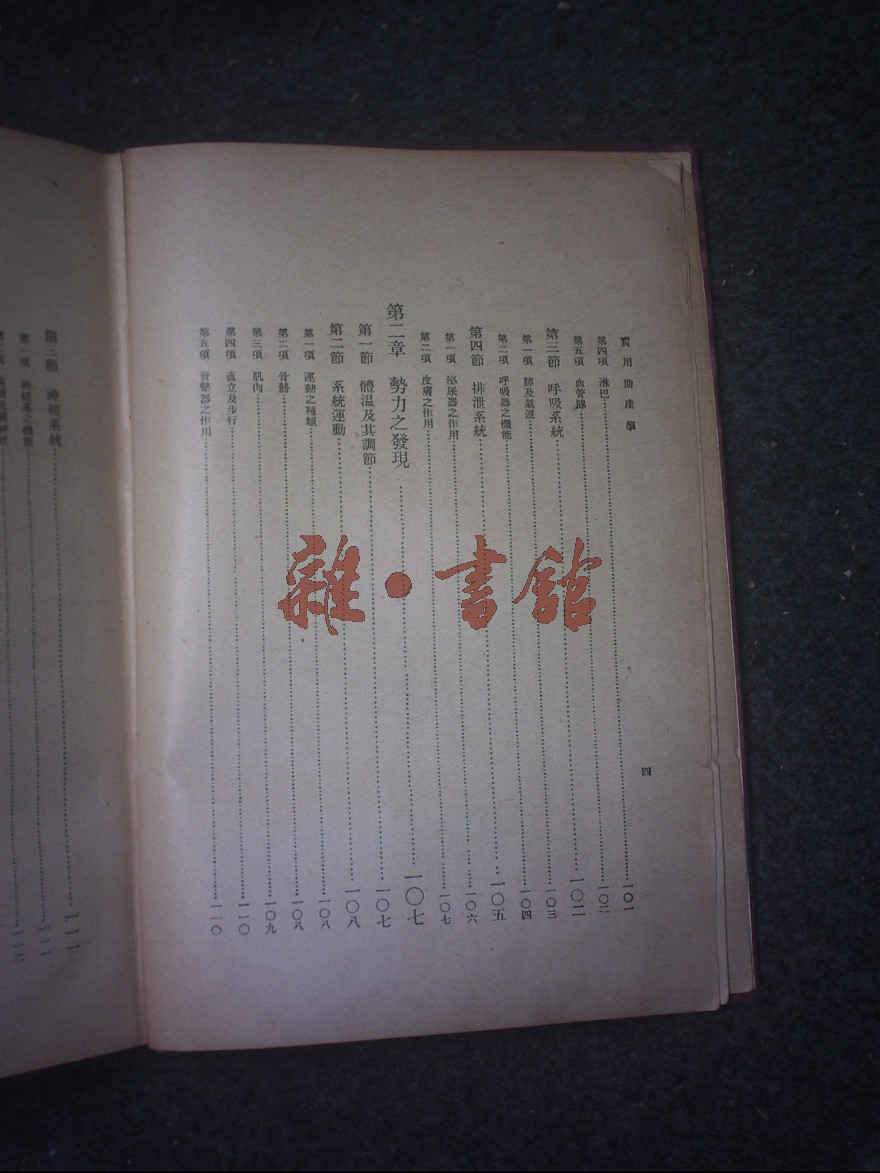 實用助産學
第四項 淋巴……一〇一
第五項 血管腺……一〇二
第三節 呼吸系統……一〇二
第一項 肺及氣道……一〇三
第二項 呼吸器之機能……一〇四
第四節 排泄系統……一〇五
第一項 泌尿器之作用……一〇六
第二項 皮膚之作用……一〇七
第二章 勢力之發現……一〇七
第一節 體温及其調節……一〇七
第二節 系統運動……一〇八
第一項 運動之種類……一〇八
第二項 骨骼……一〇八
第三項 肌肉……一〇九
第四項 直立及步行……一一〇
第五項 發聲器之作用……一一〇
四
第三節 神經系統……一一一
第一項 神經系之機能……一一一
雜·書館